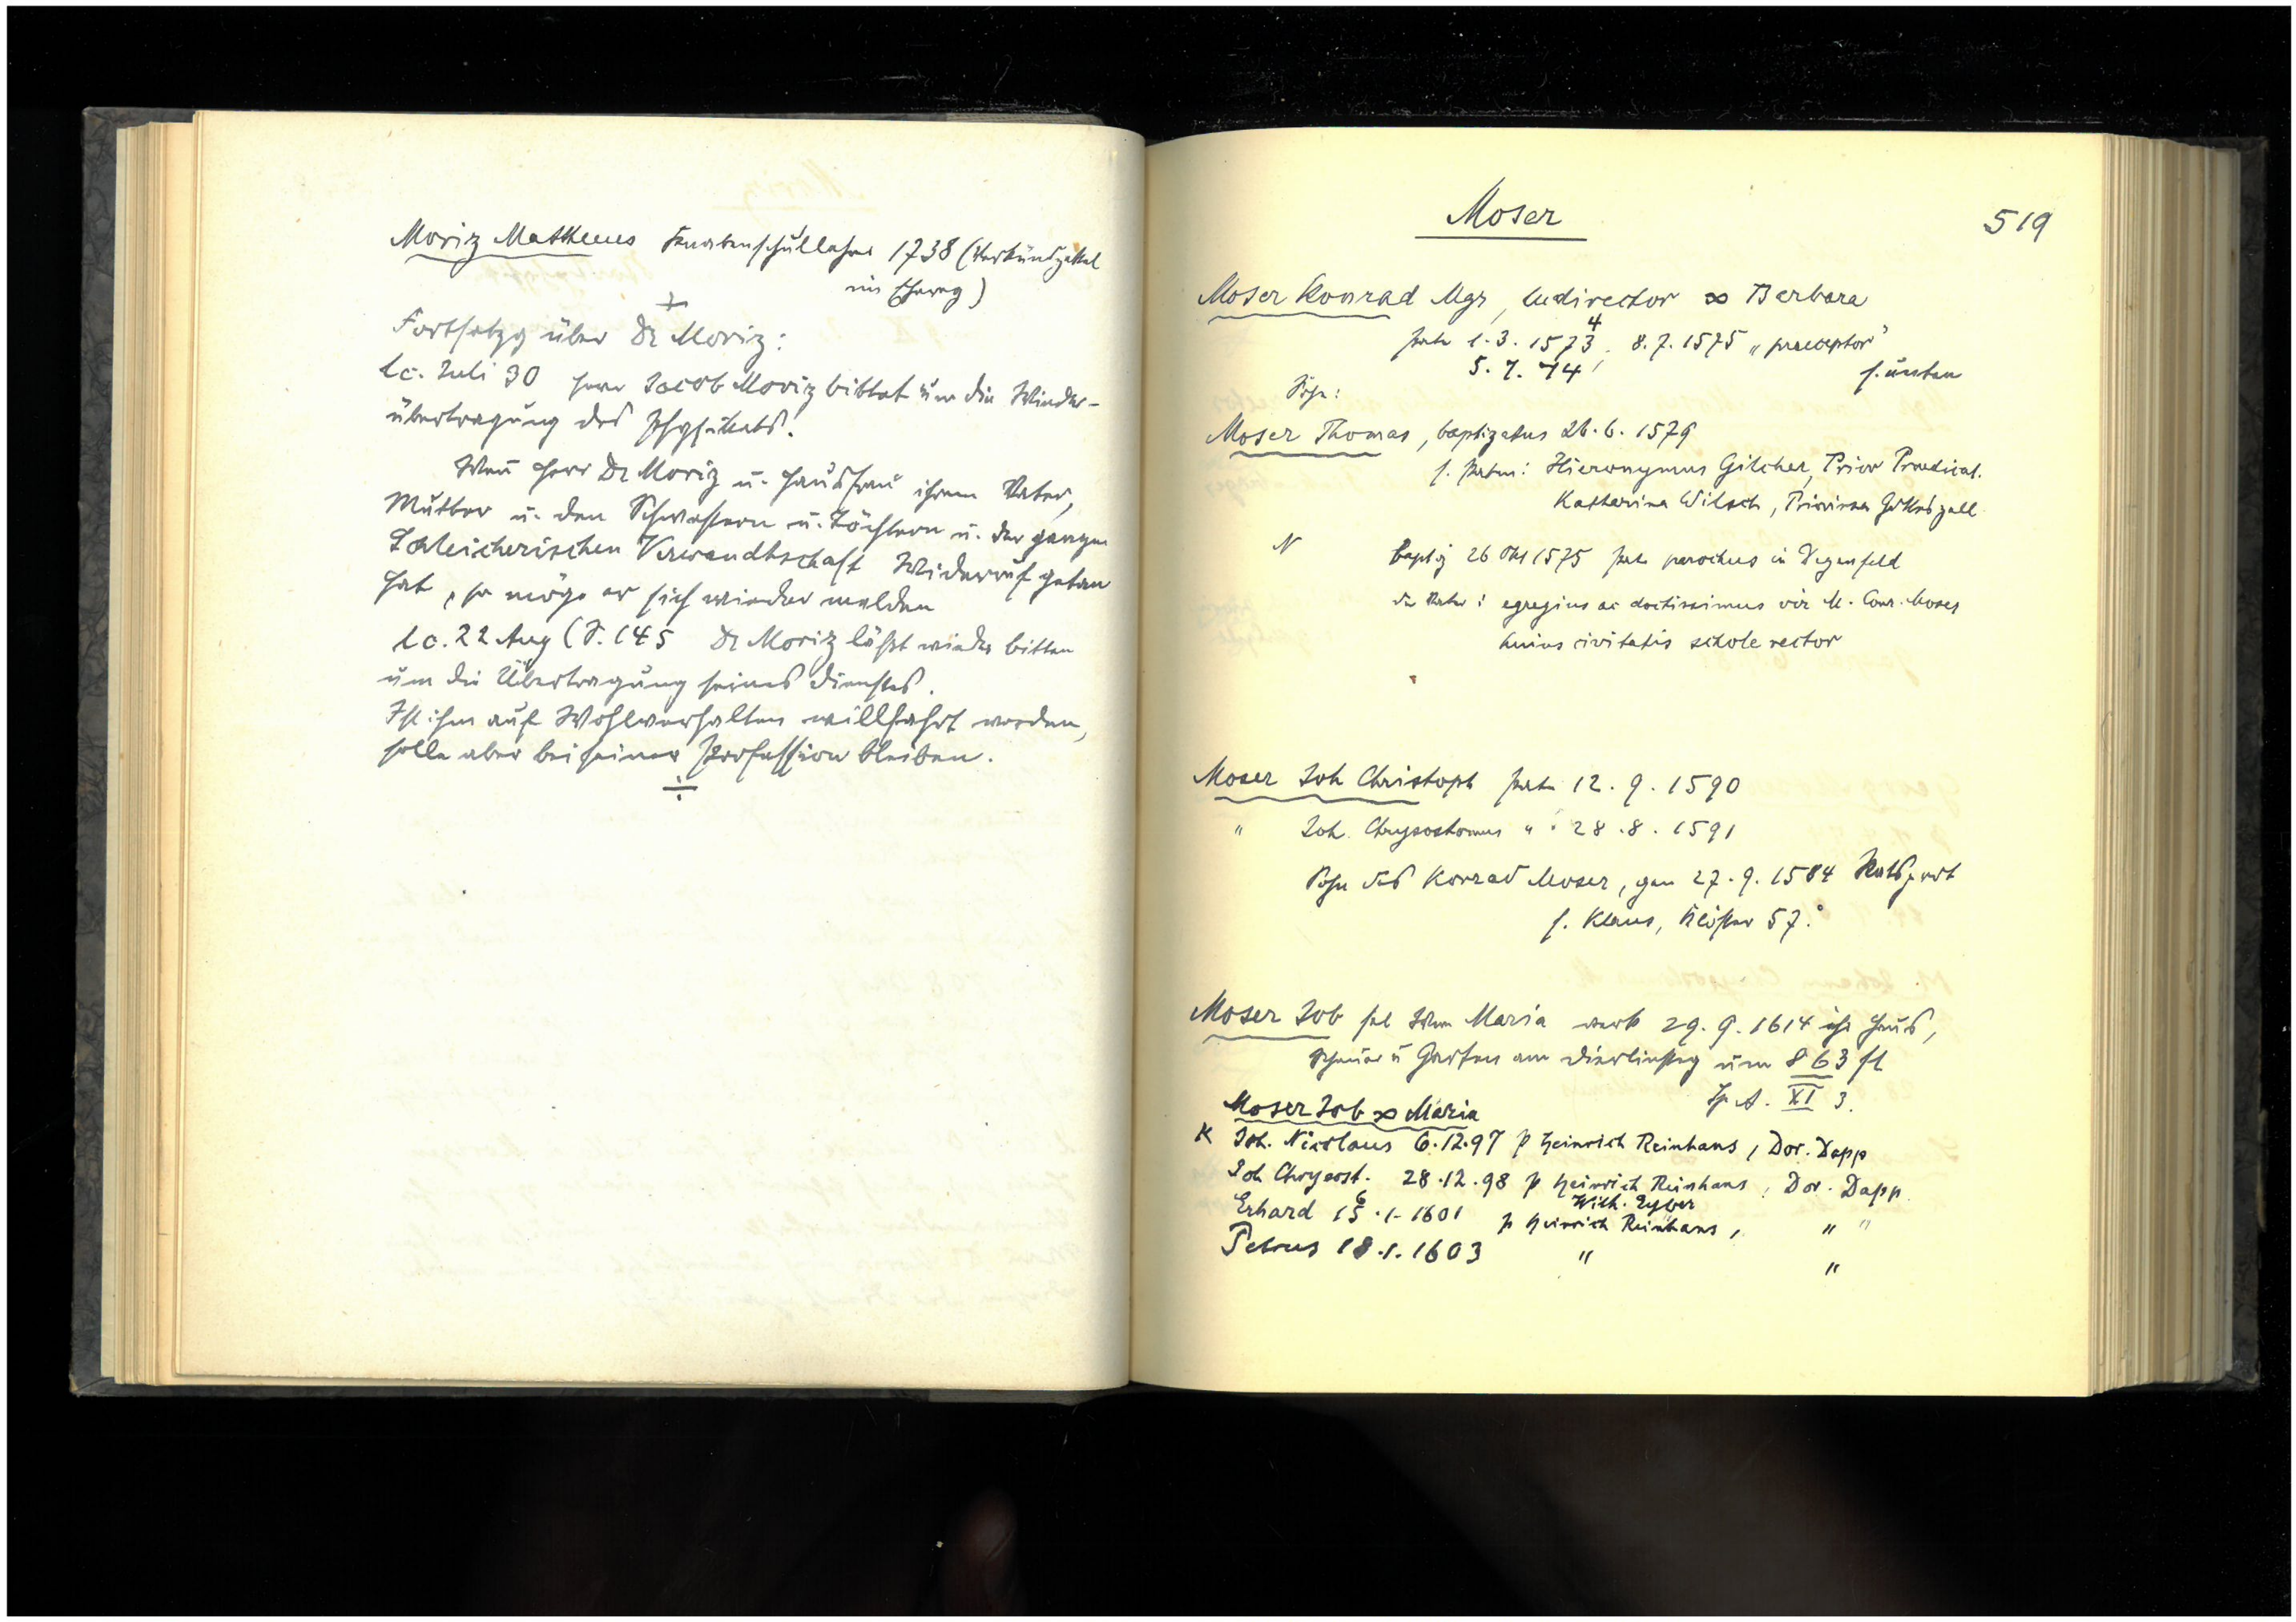 Moriz Mattheus Knabenschullehrer 1738 (Verkündzettel
im
Fortsetzg über Dr Moriz:
lc. Juli 30 Herr Jacob Moriz bittet um die Wieder-
übertragung des Physikats.
Wen Herr Dr Moriz u. Hausfrau ihrem Vater,
Mutter u. den Schwestern u. Töchtern u. der ganzen
Schleicherischen Verwandtschaft Widerruf getan
hat, so möge er sich wieder melden
lc. 22 Aug (S. 145 Dr Moriz läßt wieder bitten
um die Übertragung seines Dienstes.
Ist ihm auf Wohlverhalten willfahrt worden,
solle aber bei seiner Profession bleiben.
Moser
519
Moser Konrad Mgr, ludirector ∞ Barbara
4
pate 1.3.1573, 8.7.1575 „preceptor"
5.7.74, s. unten
Sohn:
Moser Thomas, baptizatus 26.6.1579
s. Paten: Hieronymus Gilcher, Prior Praedicat.
Katharina Wilsch, Priorissa Gotteszell
N baptiz 26 Okt 1575 pate parochus in Degenfeld
der Vater: egregius ac doctissimus vir M. Conr. Moser
huius civitatis schole rector
Moser Joh Christoph pate 12.9.1590
" Joh. Chrysostomus " 28.8.1591
Sohn des Konrad Moser, gen 27.9.1584 Ratsprot
s. Klaus, Klöster 57.
Moser Job sel Wwe Maria verk 29.9.1614 ihr Haus,
Scheuer u Garten am um 863 fl
Sp A. XI 3.
Moser Job ∞ Maria
K Joh. Nicolaus 6.12.97 p Heinrich Reinhans, Dor. Dapp
Joh Chrysost. 28.12.98 p Heinrich Reinhans, Dor. Dapp.
6 Wilh. Eyber
Erhard 15.1.1601 p Heinrich Reinhans, " "
Petrus 18.1.1603 " "